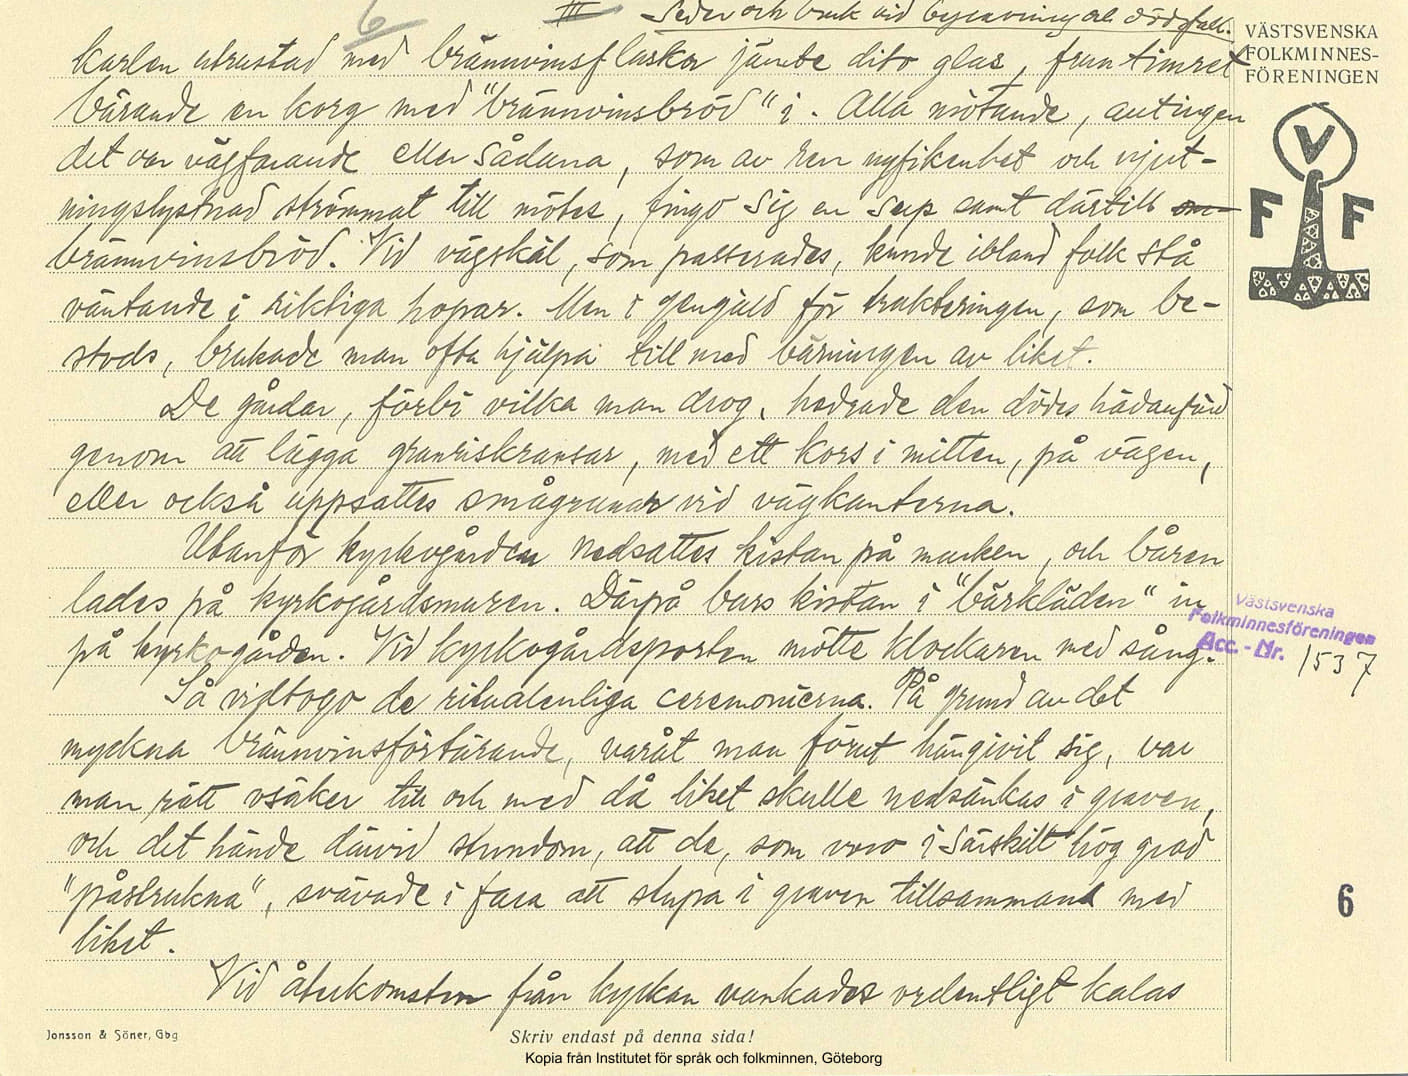 6
III Seder och bruk vid begravning och dödsfall.
karlen utrustad med brännvinsflaskor jämte dito glas, fruntimret
bärande en korg med "brännvinsbröd" i. Alla mötande, antingen
det var vägfarande eller sådana, som av ren nyfikenhet och njut-
ningslystnad strömmat till mötes, fingo sig en sup samt därtill
brännvinsbröd. Vid vägskäl, som passerades, kunde ibland folk stå
väntande i riktiga hopar. Men i gengäld för trakteringen, som be-
stods, brukade man ofta hjälpa till med bärningen av liket.
De gårdar, förbi vilka man drog, hedrade den dödes hädanfärd
genom att lägga granriskransar, med ett kors i mitten, på vägen,
eller också uppsattes smågranar vid vägkanterna.
Utanför kyrkogården nedsattes kistan på marken, och båren
lades på kyrkogårdsmuren. Därpå bars kistan i "bärkläden" in
på kyrkogården. Vid kyrkogårdsporten mötte klockaren med sång.
Så vidtogo de ritualenliga ceremonierna. På grund av det
myckna brännvinsförtärande, varåt man förut hängivit sig, var
man rätt osäker till och med då liket skulle nedsänkas i graven,
och det hände därvid stundom, att de, som voro i särskilt hög grad
"påstrukna", svävade i fara att stupa i graven tillsammans med
liket.
Vid återkomsten från kyrkan vankades ordentligt kalas
VÄSTSVENSKA
FOLKMINNES-
FÖRENINGEN
V
F F
Västsvenska
Folkminnesföreningen
Acc.-Nr. 1537
6
Jonsson & Söner, Gbg
Skriv endast på denna sida!
Kopia från Institutet för språk och folkminnen, Göteborg